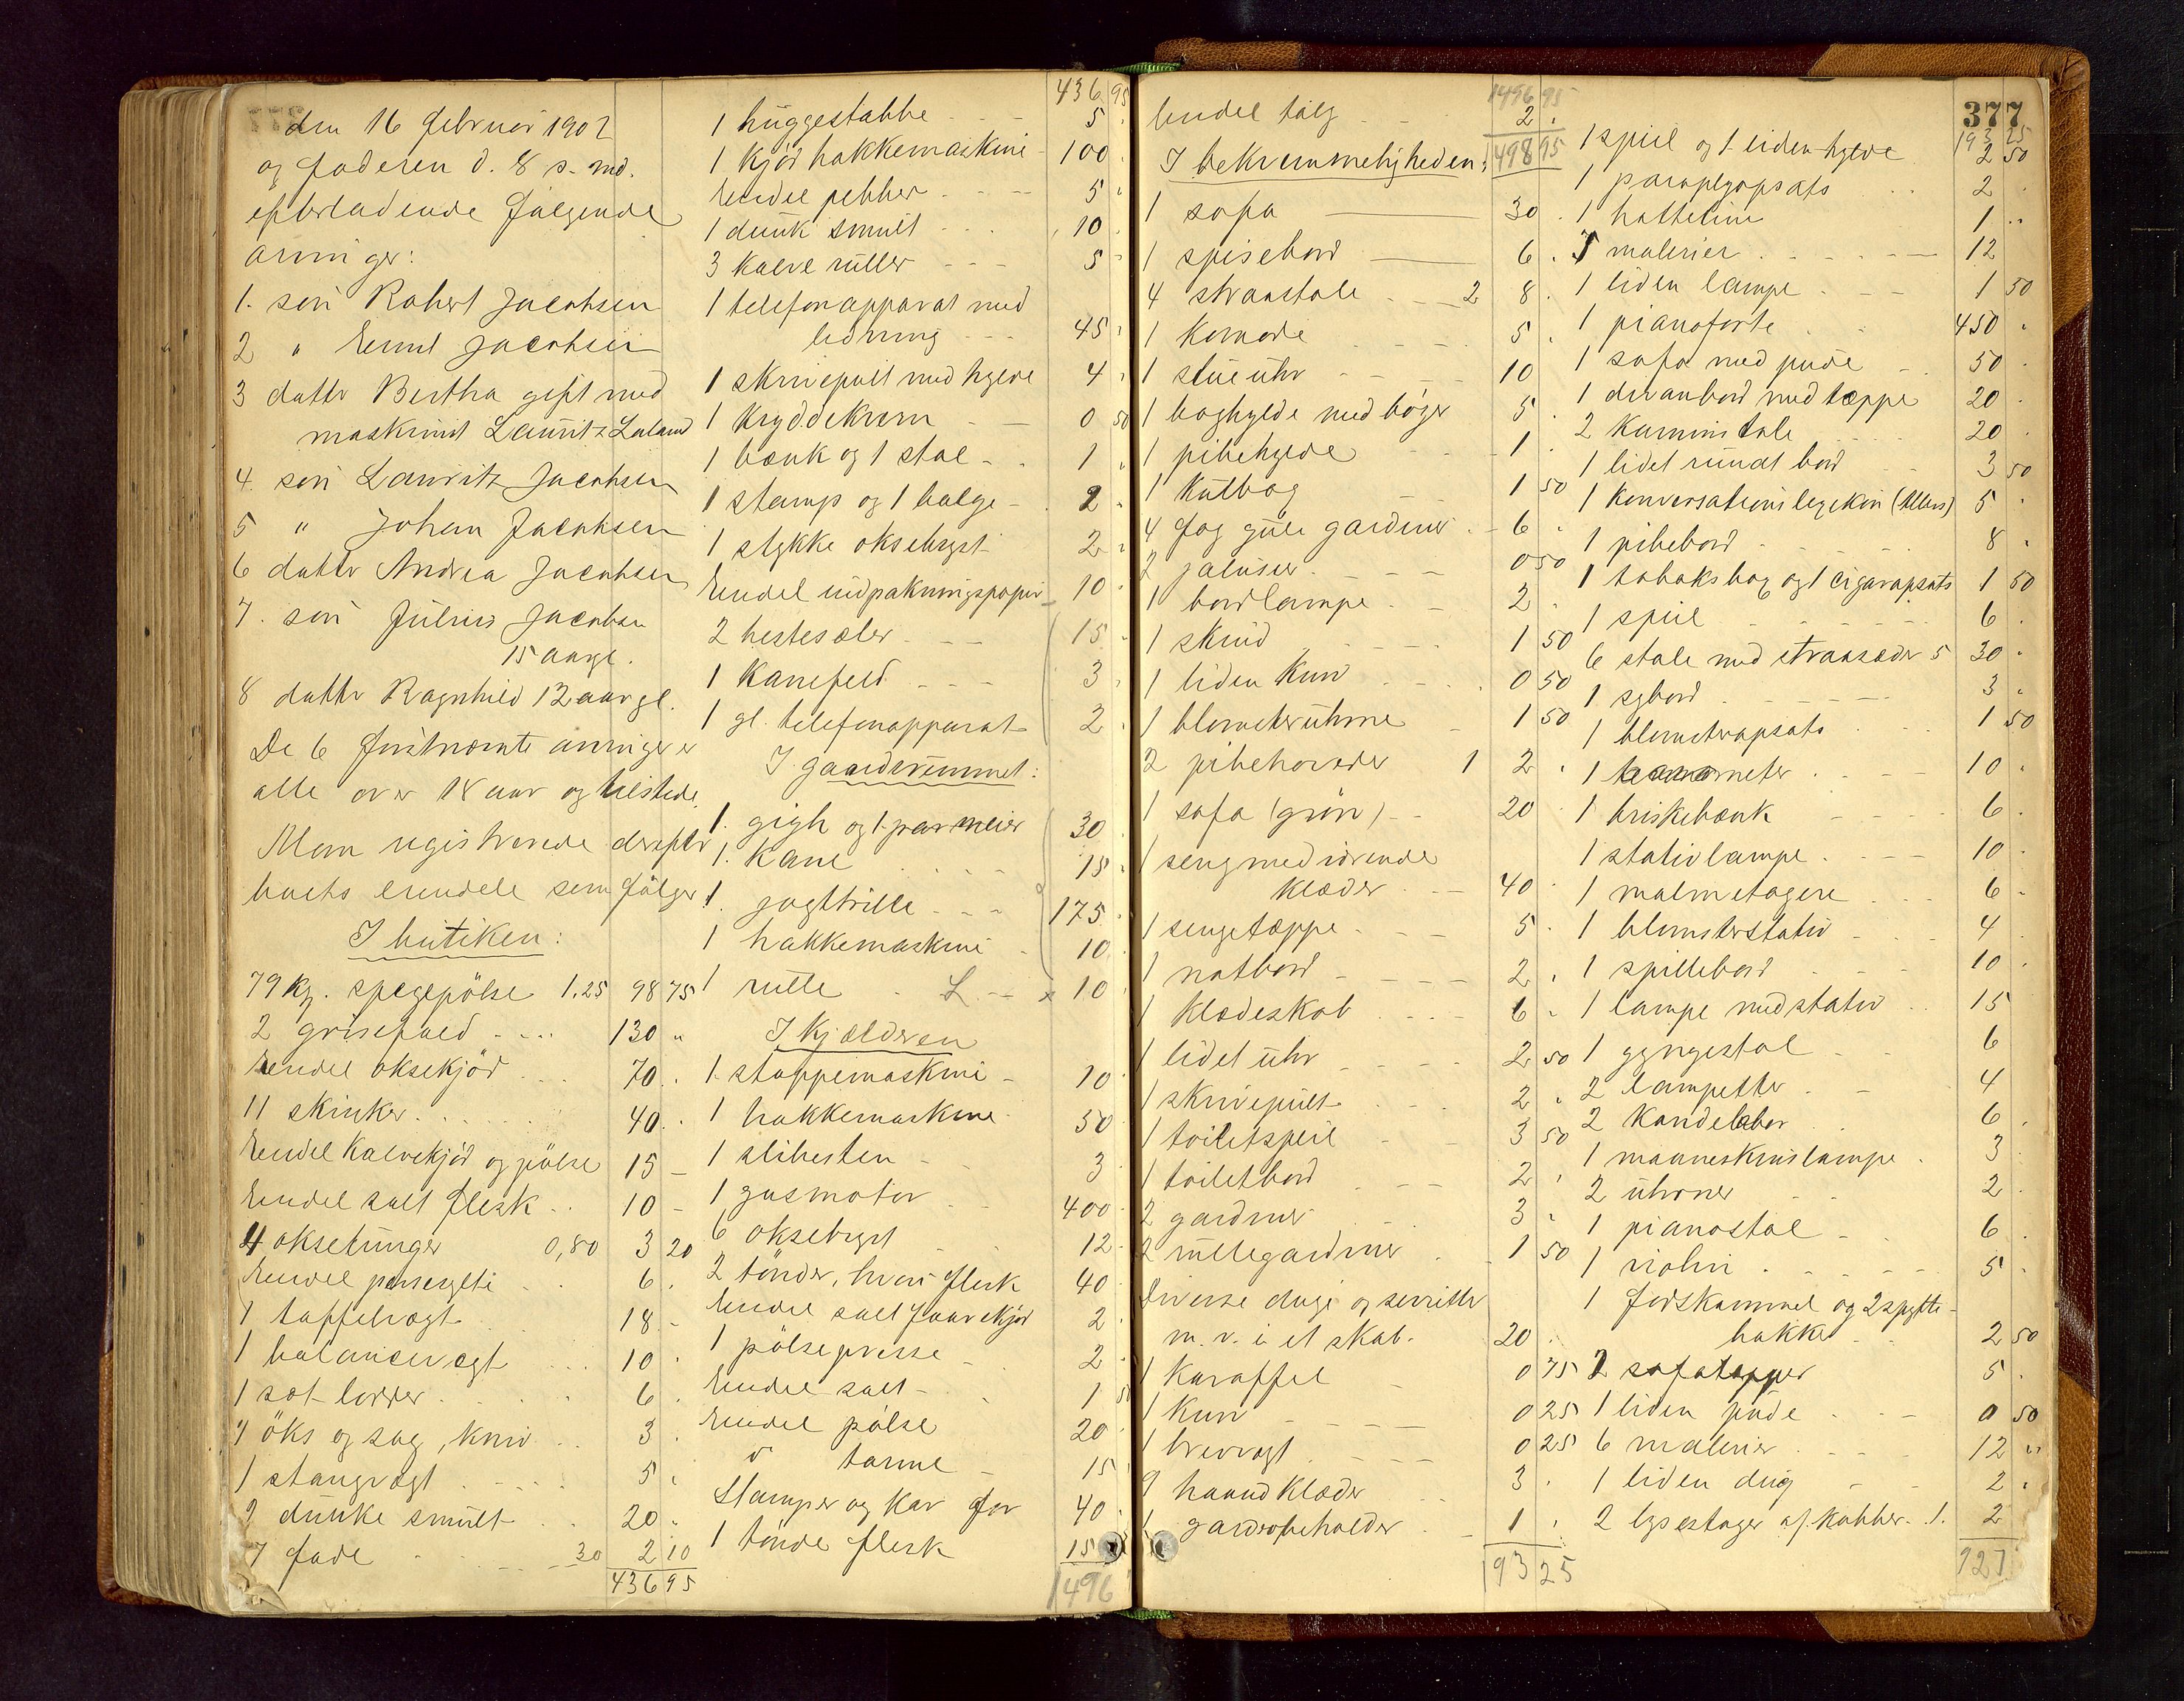 den 16 februar 1902
og faderen d. 8 s. md.
efterladende følgende
arvinger:
1. søn Robert Jacobsen
2 " Emil Jacobsen
3 datter Bertha gift med
maskinist Lauritz Laland
4. søn Lauritz Jacobsen
5 " Johan Jacobsen
6 datter Andrea Jacobsen
7. søn Julius Jacobsen
15 aar gl.
8 datter Ragnhild 12 aar gl.
De 6 førstnævnte arvinger er
alle over 18 aar og tilstede.
Man registrerede derefter
boets eiendele som følger
I butiken:
79 kg. spegepölse 1.25 98 75
2 grisefald 130 "
Endel oksekjöd 70 "
11 skinker 40 "
Endel kalvekjöd og pölse 15 -
Endel salt flesk 10 -
4 oksetunger 0,80 3 20
Endel persesylte 6 .
1 taffelvægt 18 -
1 balancevægt 10 .
1 sæt lodder 6 .
1 öks og sag, kniv 3 .
1 stangvægt 5 .
2 dunke smult 20 .
7 fade 30 2 10
436 95
436 95
1 huggestabbe 5 .
1 kjödhakkemaskine 100 .
Endel pebber 5 "
1 dunk smult 10 .
3 kalveruller 5 "
1 telefonapparat med
ledning 45 "
1 skrivepult med hylde 4 "
1 kryddekvern 0 50
1 bænk og 1 stol 1 "
1 stamp og 1 balge 2 "
1 stykke oksebryst 2 "
Endel indpakningspapir 10 .
2 hestesæler 15 .
1 kanefeld 3 .
1 gl. telefonapparat 2 .
I gaardsrummet:
1. gigh og 1 par meier 30 .
1. kane 15 .
1. jagttrille 175 .
1 hakkemaskine 10 .
1 rulle L. x 10 .
I kjælderen
1. stoppemaskine 10 .
1 hakkemaskine 50 .
1 slibesten 3 .
1 gasmotor 400 .
6 oksebryst 12 .
2 tönder, hvori flesk 40 .
Endel salt faarekjöd 2 .
1 pölsepresse 2 .
Endel salt 1 50
Endel pölse 20 .
" tarme 15 .
Stamper og kar for 40 .
1 tönde flesk 15
1496
1496 95
Endel talg 2 .
1498 95
I bekvemmeligheden:
1 sofa 30 .
1 spisebord 6 .
4 straastole 2 8 .
1 komode 5 .
1 stueuhr 10
1 boghylde med böger 5 .
1 pibehylde 1 .
1 kulbog 1 50
4 fag gule gardiner 6 "
2 jalusier 0 50
1 bordlampe 2 .
1 skind 1 50
1 liden kurv 0 50
1 blomsterurne 1 50
2 pibehoveder 1 2 .
1 sofa (grön) 20
1 seng med værende
klæder 40 .
1 sengetæppe 5 .
1 natbord 2 .
1 klædeskab 6 "
1 lidet uhr 2 50
1 skrivepult 2 .
1 toiletspeil 3 50
1 toiletbord 2 .
2 gardiner 3 "
2 rullegardiner 1 50
Diverse duge og servietter
m. v. i et skab. 20 .
1 karaffel 0 75
1 kurv 0 25
1 brevvægt 0 25
9 haandklæder 3 .
1 garderobeholder 1 .
193 25
377
193 25
1 speil og 1 liden hylde 2 50
1 paraplyopsats 2 .
1 hatteline 1 "
3 malerier 12
1 liden lampe 1 50
1 pianoforte 450 "
1 sofa med pude 50 .
1 divanbord med tæppe 20 .
2 kaminstole 20 .
1 lidet rundt bord 3 50
1 konversationslexikon (Allers) 5 "
1 pibebord 8 "
1 tobaksbog og 1 cigaropsats 1 50
1 speil 6 .
6 stole med straasæder 5 30 "
1 sybord 3 "
1 blomsteropsats 1 50
1 barometer 10 .
1 briskebænk 6 .
1 stativlampe 10 .
1 malmetagere 6 "
1 blomsterstativ 4 .
1 spillebord 10 .
1 lampe med stativ 15
1 gyngestol 6
2 lampetter 4
2 kandelaber 6 .
1 maaneskinslampe 3 .
2 uhrner 2 .
1 pianostol 6 .
1 violin 5 .
1 fodskammel og 2 spytte-
bakker 2 50
2 sofatepper 5 .
1 liden pude 0 50
6 malerier 12 "
1 liden dug 2 .
2 lysestager af kobber 1. 2
927